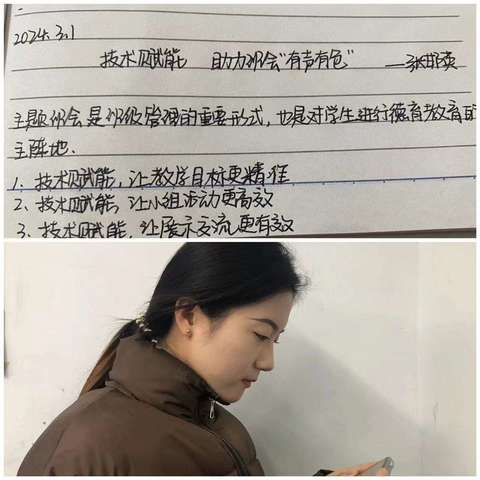 2024.3.1
技术赋能 助力班会"有声有色" ——张
主题班会是班级管理的重要形式，也是对学生进行德育教育的
主阵地.
1、技术赋能，让教学目标更精准
2、技术赋能，让小组活动更高效
3、技术赋能，让展示交流更有效